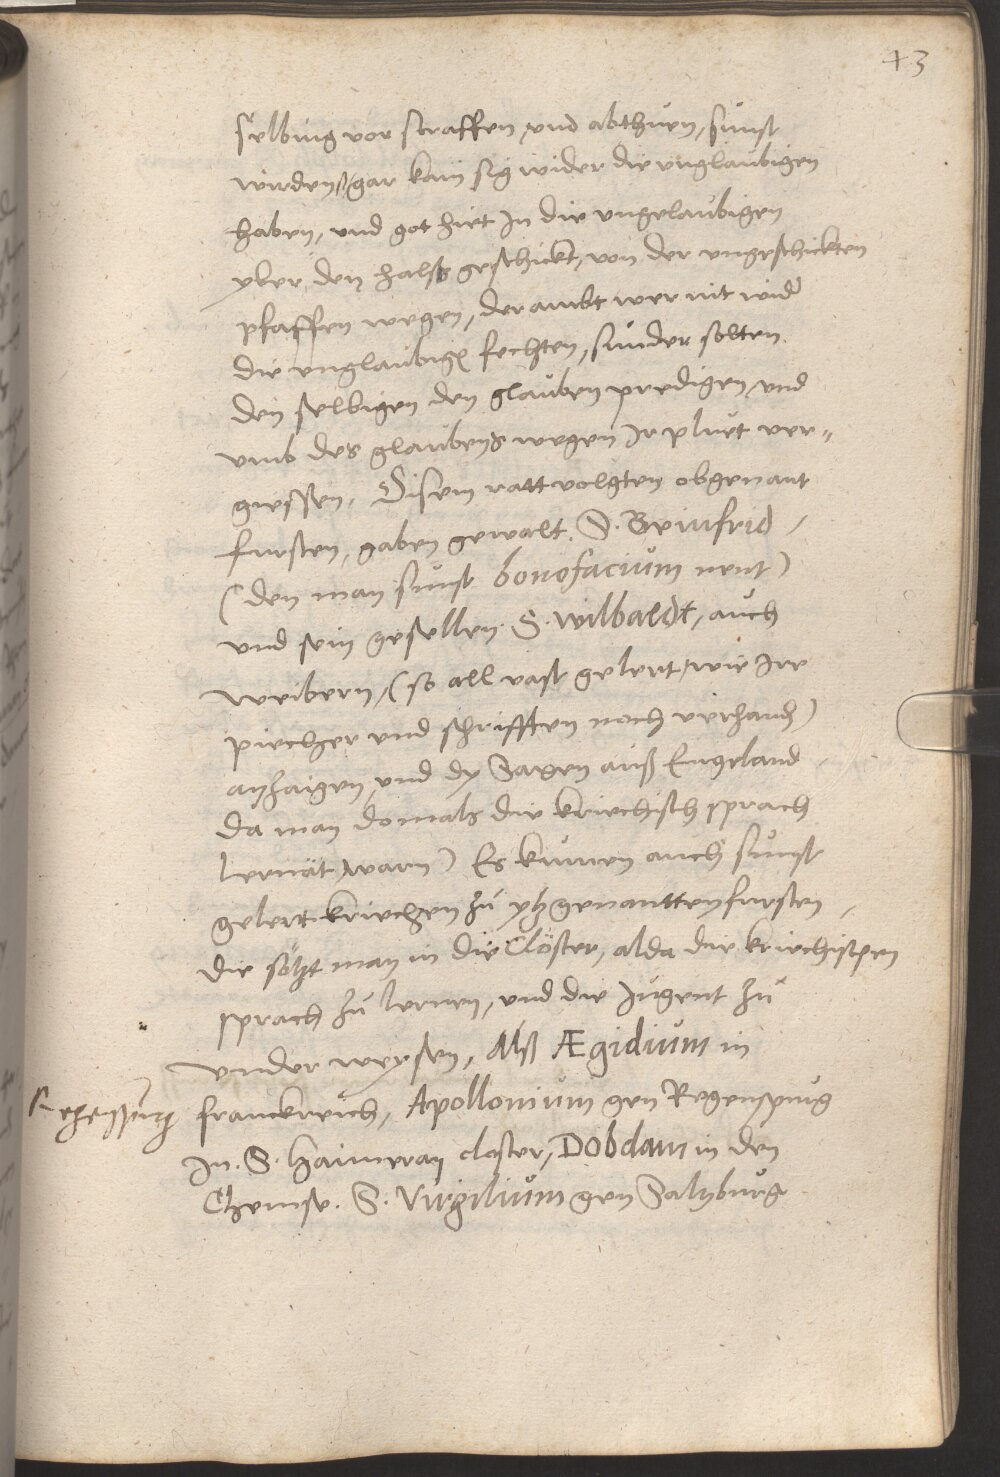 43
selbing vor straffen und abthuen, sunst
wirdens gar kain sig wider die unglaubigen
haben, und got hiet In die ungelaubigen
yber den halss geschickt, von der ungeschickten
pfaffen wegen, der ambt wer nit wider
die unglaubigen fechten, sunder solten
den selbigen den glauben predigen und
umb des glaubens wegen Ir pluet ver„
giessen. Disem ratt volgten obgenant
fursten, gaben gewalt. S. Beinfrid /
(den man sunst bonofacium nent)
und sein gesellen. S. Wilbaldt, auch
weibern, (so all vast gelert, wie Ire
piecher und schrifften noch verhandt)
anzaigen, und dy Saxen auß Engeland
da man domals die kriechisch sprach
lernät, warn) Es kumen auch sunst
gelert kriechen zu ytzgenantten fursten,
die sötzt man in die Clöster, alda die kriechischen
sprach zu lernen, und die Jugent zu
under weysen, Alß Ægidium in
Regenspurg
franckreich, Apollonium gen Regenspurg
In. S. Haimeran closter, Dobdam in den
Chemse. S. Virgilium gen Saltzburg